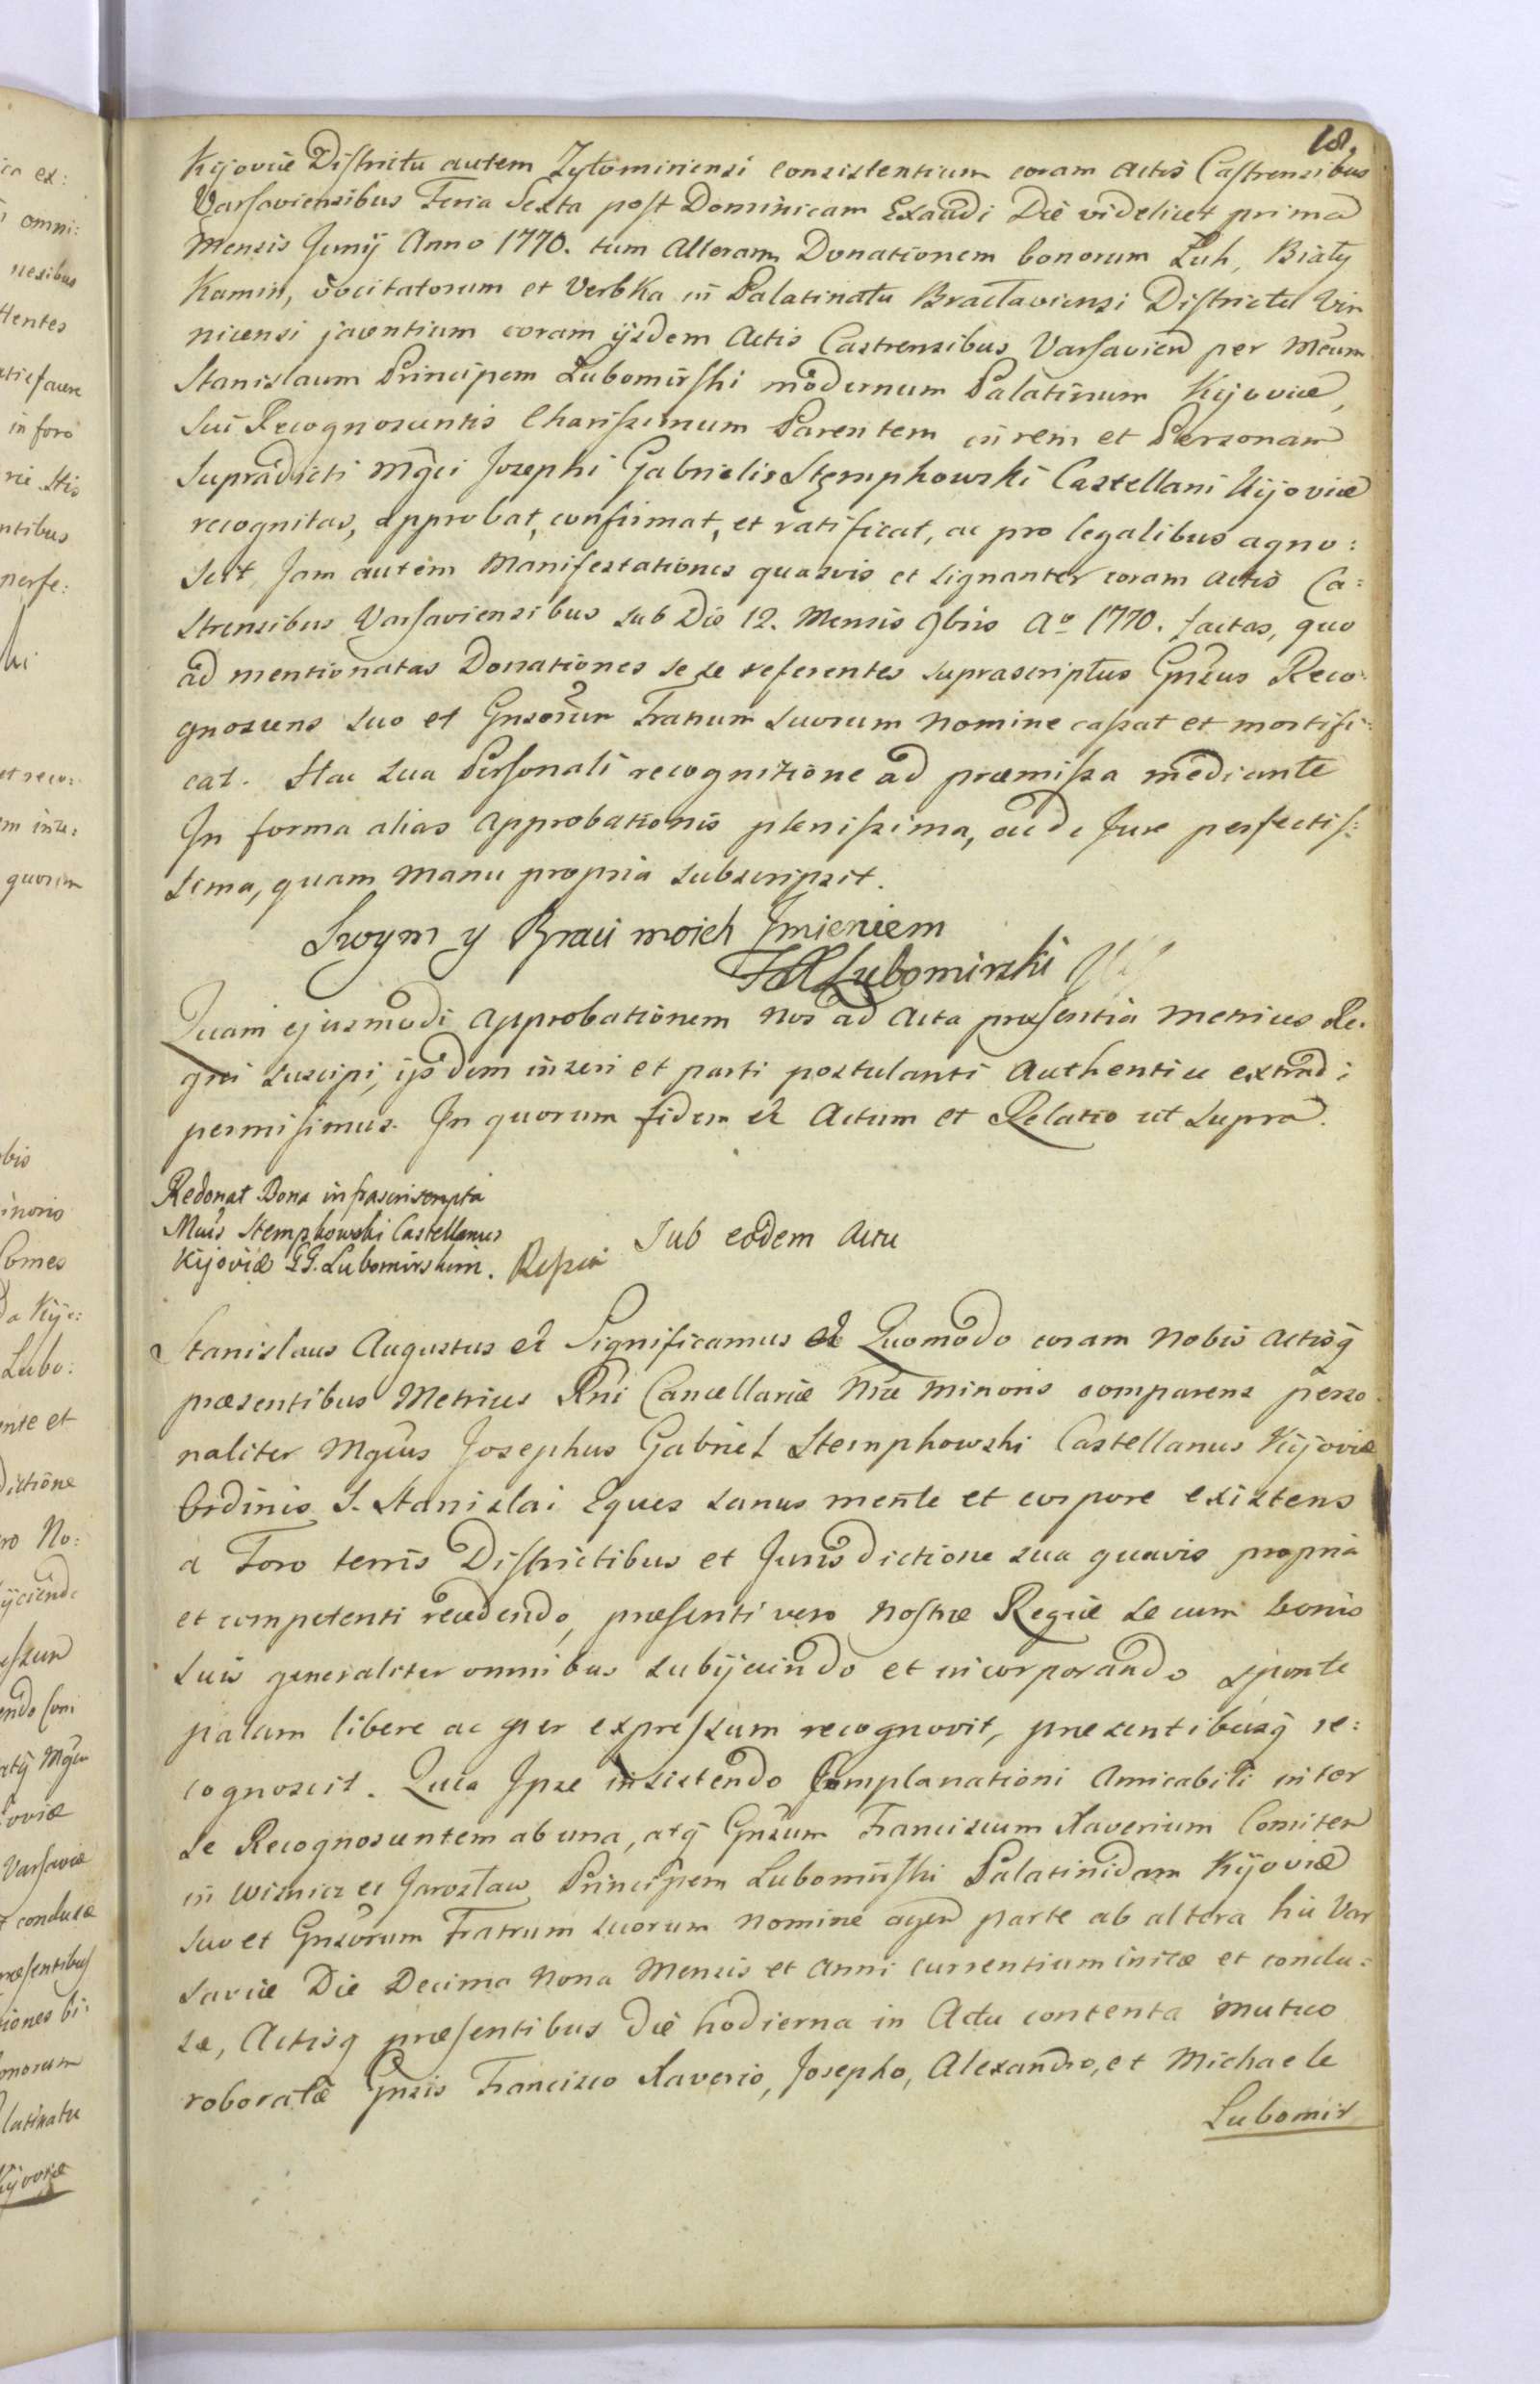 18.
Kijoviæ Districtu autem Zytominiensi consistentium coram actis Castrensibus
Varsaviensibus Feria Sexta post Dominicam Exaudi Die videlicet prima
Mensis Junij Anno 1770. tum alteram Donationem bonorum Łuh, Biały
Kamin, vocitatorum et Verbka in Palatinatu Bracłaviensi Districtu Vin
nicensi jacentium coram ijsdem Actis Castrensibus Varsavien per Mcum
Stanislaum Principem Lubomirski modernum Palatinum Kijoviæ,
sui Recognoscentis Charissimum Parentem in rem et Personam
supradicti Mgci Josephi Gabrielis Stęmpkowski Castellani Kijoviæ
recognitas, approbat, confirmat, et ratificat, ac pro legalibus agno:
scit, Jam autem Manifestationes quasvis et signanter coram actis Ca:
strensibus Varsaviensibus sub Die 12. Mensis 9bris Ao 1770. factas, quo
ad mentionatas Donationes se se referentes suprascriptus Gnsus Reco:
gnoscens suo et Gnsorum Fratrum suorum nomine cassat et mortifi:
cat. Hac sua Personali recognitione ad præmissa mediante
In forma alias approbationis plenissima, ac de Jure perfectis:
sima, quam manu propria subscripsit.
Swym y Braci moich Imieniem
FX Lubomirski
Quam ejusmodi approbationem nos ad acta præsentia Metrices Re:
gni suscipi, ijsdem inseri et parti postulanti Authentice extradi
permisimus. In quorum fidem et Actum et Relatio ut supra.
Redonat Bona infrascriscripta
Mcus Stempkowski Castellanus
Kijoviæ GG. Lubomirskim.
Sub eodem Actu
Stanislaus Augustus et Significamus et Quomodo coram nobis actisq
præsentibus Metrices Rni Cancellariæ Nræ minoris comparens perso
naliter Mgcus Josephus Gabriel Stempkowski Castellanus Kijoviæ
Ordinis S. Stanislai Eques sanus mente et corpore existens
a Foro terris Districtibus et Jurisdictione sua quavis propria
et competenti recedendo, præsenti vero nostræ Regiæ se cum bonis
suis generaliter omnibus subijciendo et incorporando sponte
palam libere ac per expressum recognovit, præsentibusq re:
cognoscit. Quia Ipse insistendo Complanationi Amicabili inter
se Recognoscentem ab una, atq Gnsum Franciscum Xaverium Comitem
in Wisnicz et Jarosław Principem Lubomirski Palatinidam Kijoviæ
suo et Gnsorum Fratrum suorum nomine agen parte ab altera hic Var
saviæ Die Decima Nona Mensis et Anni currentium initæ et conclu:
sæ, Actisq præsentibus die hodierna in Actu contenta mutuo
roboratæ Gnsis Francisco Xaverio, Josepho, Alexandro, et Michaele
Lubomir